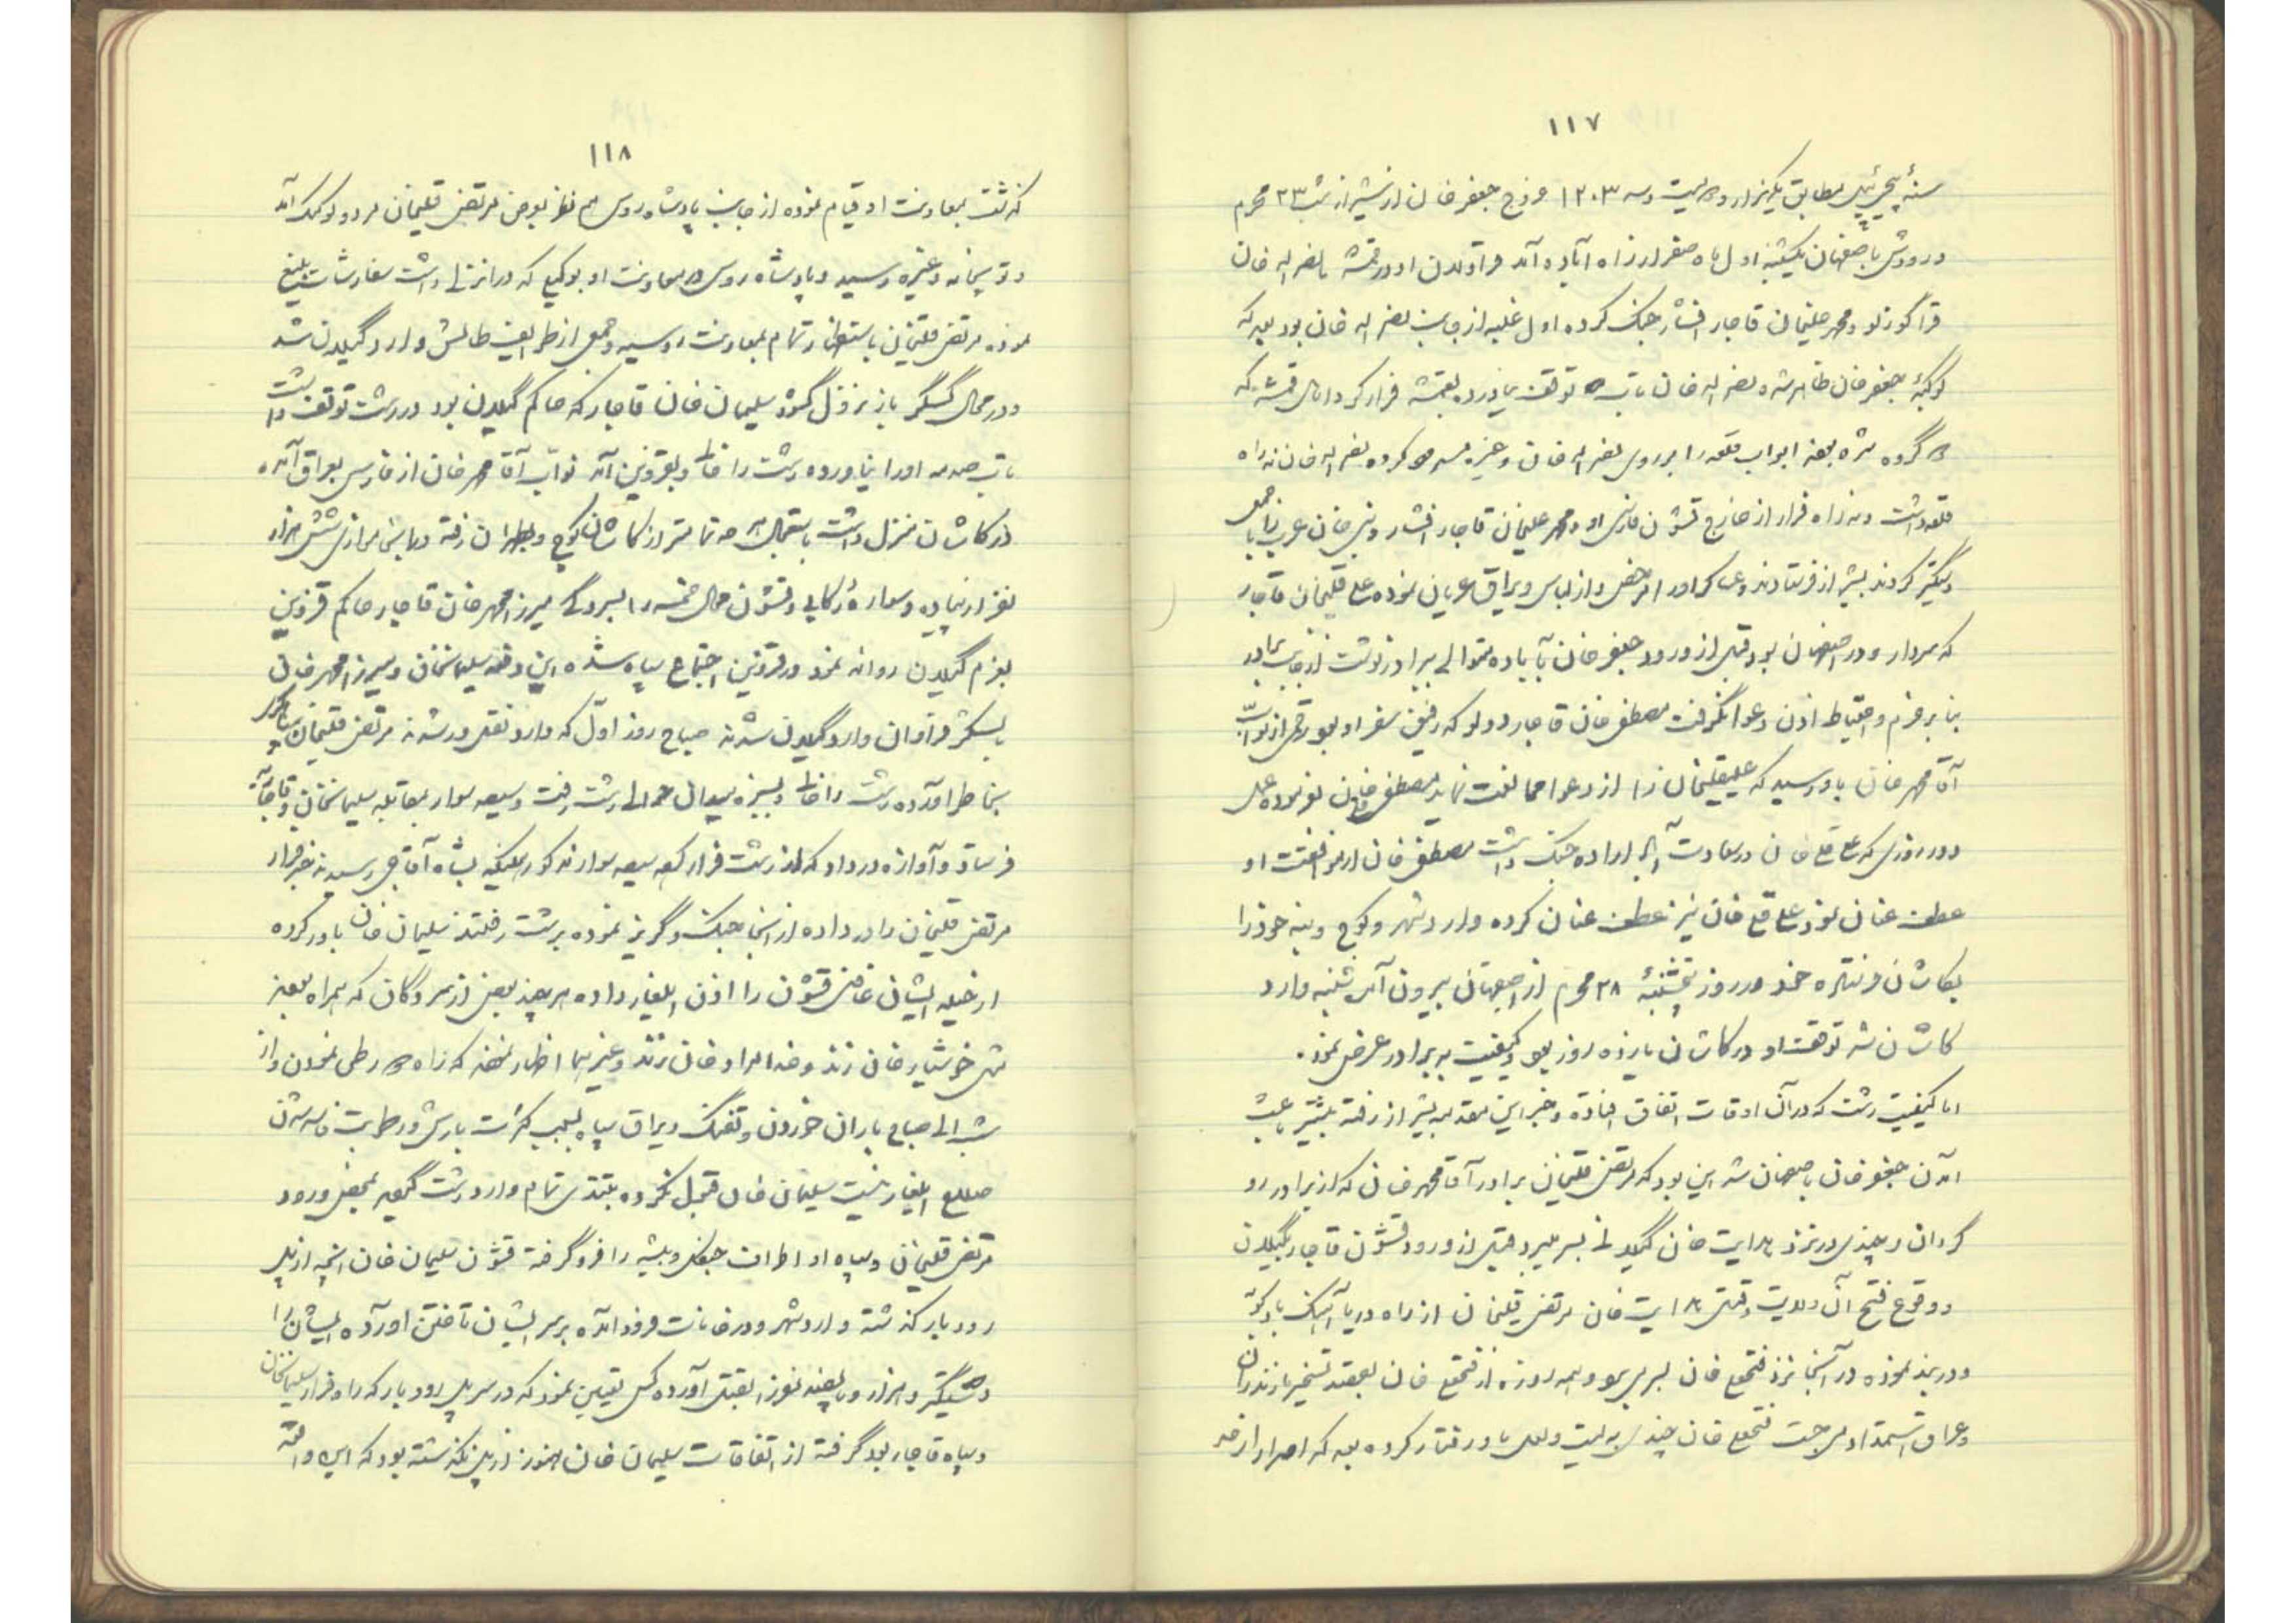 ۱۱۷
سنهٔ پیچی‌ئیل مطابق یکهزار و دویست و سه ۱۲۰۳ خروج جعفر خان از شیراز شب ۲۳ محرم
ورودش باصفهان یکشنبه اول ماه صفر از راه آباده آمد قراولان او در قمشه با نصراله خان
قراگوزلو و محمد علیخان قاجار افشار جنگ کرده اول غلبه از جانب نصراله خان بود بعد که
کوکبهٔ جعفر خان ظاهر شد و نصراله خان تاب توقف نیاورده بقمشه فرار کرد اهالی قمشه که
دو گروه شده بعضی ابواب قلعه را بر روی نصراله خان و غیره مسدود کرده نصراله خان نه راه
قلعه داشت و نه راه فرار از خارج قشون فارس او و محمد علیخان قاجار افشار و نبی خان عرب را با جمعی
دستگیر کردند بشیراز فرستادند و عساکر او را مرخص و از لباس و یراق عریان نموده علی قلیخان قاجار
که سردار و در اصفهان بود قبل از ورود جعفر خان بآباده متوالی ببرادر نوشت از جانب برادر
بنابر حزم و احتیاط اذن دعوا نگرفت مصطفی خان قاجار دولو که رفیق سفر او بود رقمی از نواب
آقا محمد خان باو رسید که علیقلیخان را از دعوا ممانعت نماید مصطفی خان نموده علی
دو روزی که علی قلی خان در سعادت آباد اراده جنگ داشت مصطفی خان از موافقت او
عطف عنان نمود علی قلی خان نیز عطف عنان کرده وارد شهر و کوچ و بنه خود را
بکاشان فرستاده خود در روز پنجشنبهٔ ۲۸ محرم از اصفهان بیرون آمد شنبه وارد
کاشان شد توقف او در کاشان یازده روز بود و کیفیت به برادر عرض نمود.
اما کیفیت رشت که در آن اوقات اتفاق افتاده و خبر این مقدمه بشیراز رفته بیشتر باعث
آمدن جعفر خان باصفهان شد این بود که مرتضی قلیخان برادر آقا محمد خان که از برادر رو
گردان و چندی در نزد هدایت خان گیلانی بسر میبرد قبل از ورود قشون قاجار بگیلان
و وقوع فتح آن ولایت و قتل هدایت خان مرتضی قلیخان از راه دریا آهنگ بادکوبه
و دربند نموده در آنجا نزد فتحعلی خان بسر می‌برد و همه روزه از فتحعلی خان بعقد تسخیر مازندران
و عراق استمداد می‌جست فتحعلی خان چندی به لیت و لعل باو رفتار کرده بعد که اصرار از حد
۱۱۸
گذشت بمعاونت او قیام نموده از جانب پادشاه روس هم نظر بعرض مرتضی قلیخان مدد و کومک آمد
و توپخانه و غیره رسید و پادشاه روس در معاونت او بوکیلی که در انزلی داشت سفارشات بلیغ
نموده مرتضی قلیخان باستظهار تمام بمعاونت روسیه و جمعی از طوایف طالش وارد گیلان شد
و در محال گسگر باز نزول گشود سلیمان خان قاجار که حاکم گیلان بود در رشت توقف داشت
تاب صدمه او را نیاورده رشت را خالی و بقزوین آمد نواب آقا محمد خان از فارس بعراق آمده
در کاشان منزل داشت باستعجال هر چه تمامتر از کاشان کوچ و بطهران رفته و مجدداً موازی شش هزار
نفر از پیاده و سواره رکابی و قشون محال خمسه را بسردگی میرزا محمد خان قاجار حاکم قزوین
بعزم گیلان روانه نمود در قزوین اجتماع سپاه شده این دفعه سلیمانخان و میرزا محمد خان
با لشکر فراوان وارد گیلان شدند صباح روز اول که وارد نقله‌ور شدند مرتضی قلیخان
بخاطر آورده رشت را خالی و بسبزه میدان حوالی رشت رفت و سیصد سوار بمقابله سلیمانخان و قاجاریه
فرستاد و آوازه در داد که از رشت فرار کند سیصد سوار مذکور هنگامیکه بشاه آقاجی رسیدند خبر فرار
مرتضی قلیخان را در داده از آنجا جنگ و گریز نموده برشت رفتند سلیمان خان باور کرده
از حیله ایشان غافل قشون را اذن ایلغار داده هر چند بعضی از سرکردگان که همراه بودند
مثل خوشیار خان زند و خدامراد خان زند و غیرهما اظهار نمودند که راه دور طی نمودن و از
شب الی صباح باران خوردن و تفنگ و یراق سپاه بسبب کثرت بارش و رطوبت فاسد شدن
صلاح ایلغار نیست سلیمان خان قبول نکرده بتندی تمام وارد رشت گشتند بمحض ورود
مرتضی قلیخان و سپاه او اطراف جنگل و بیشه را فرو گرفته قشون سلیمان خان آنچه از پل
رودبار گذشته وارد شهر و در خانات فرود آمده بر سر ایشان تاختن آورده ایشان را
دستگیر و هزار و پانصد نفر را بقتل آورده کس تعیین نمود که در سر پل رودبار که راه فرار سلیمانخان
و سپاه قاجار بود گرفته از اتفاقات سلیمان خان هنوز از پل نگذشته بود که این واقعه